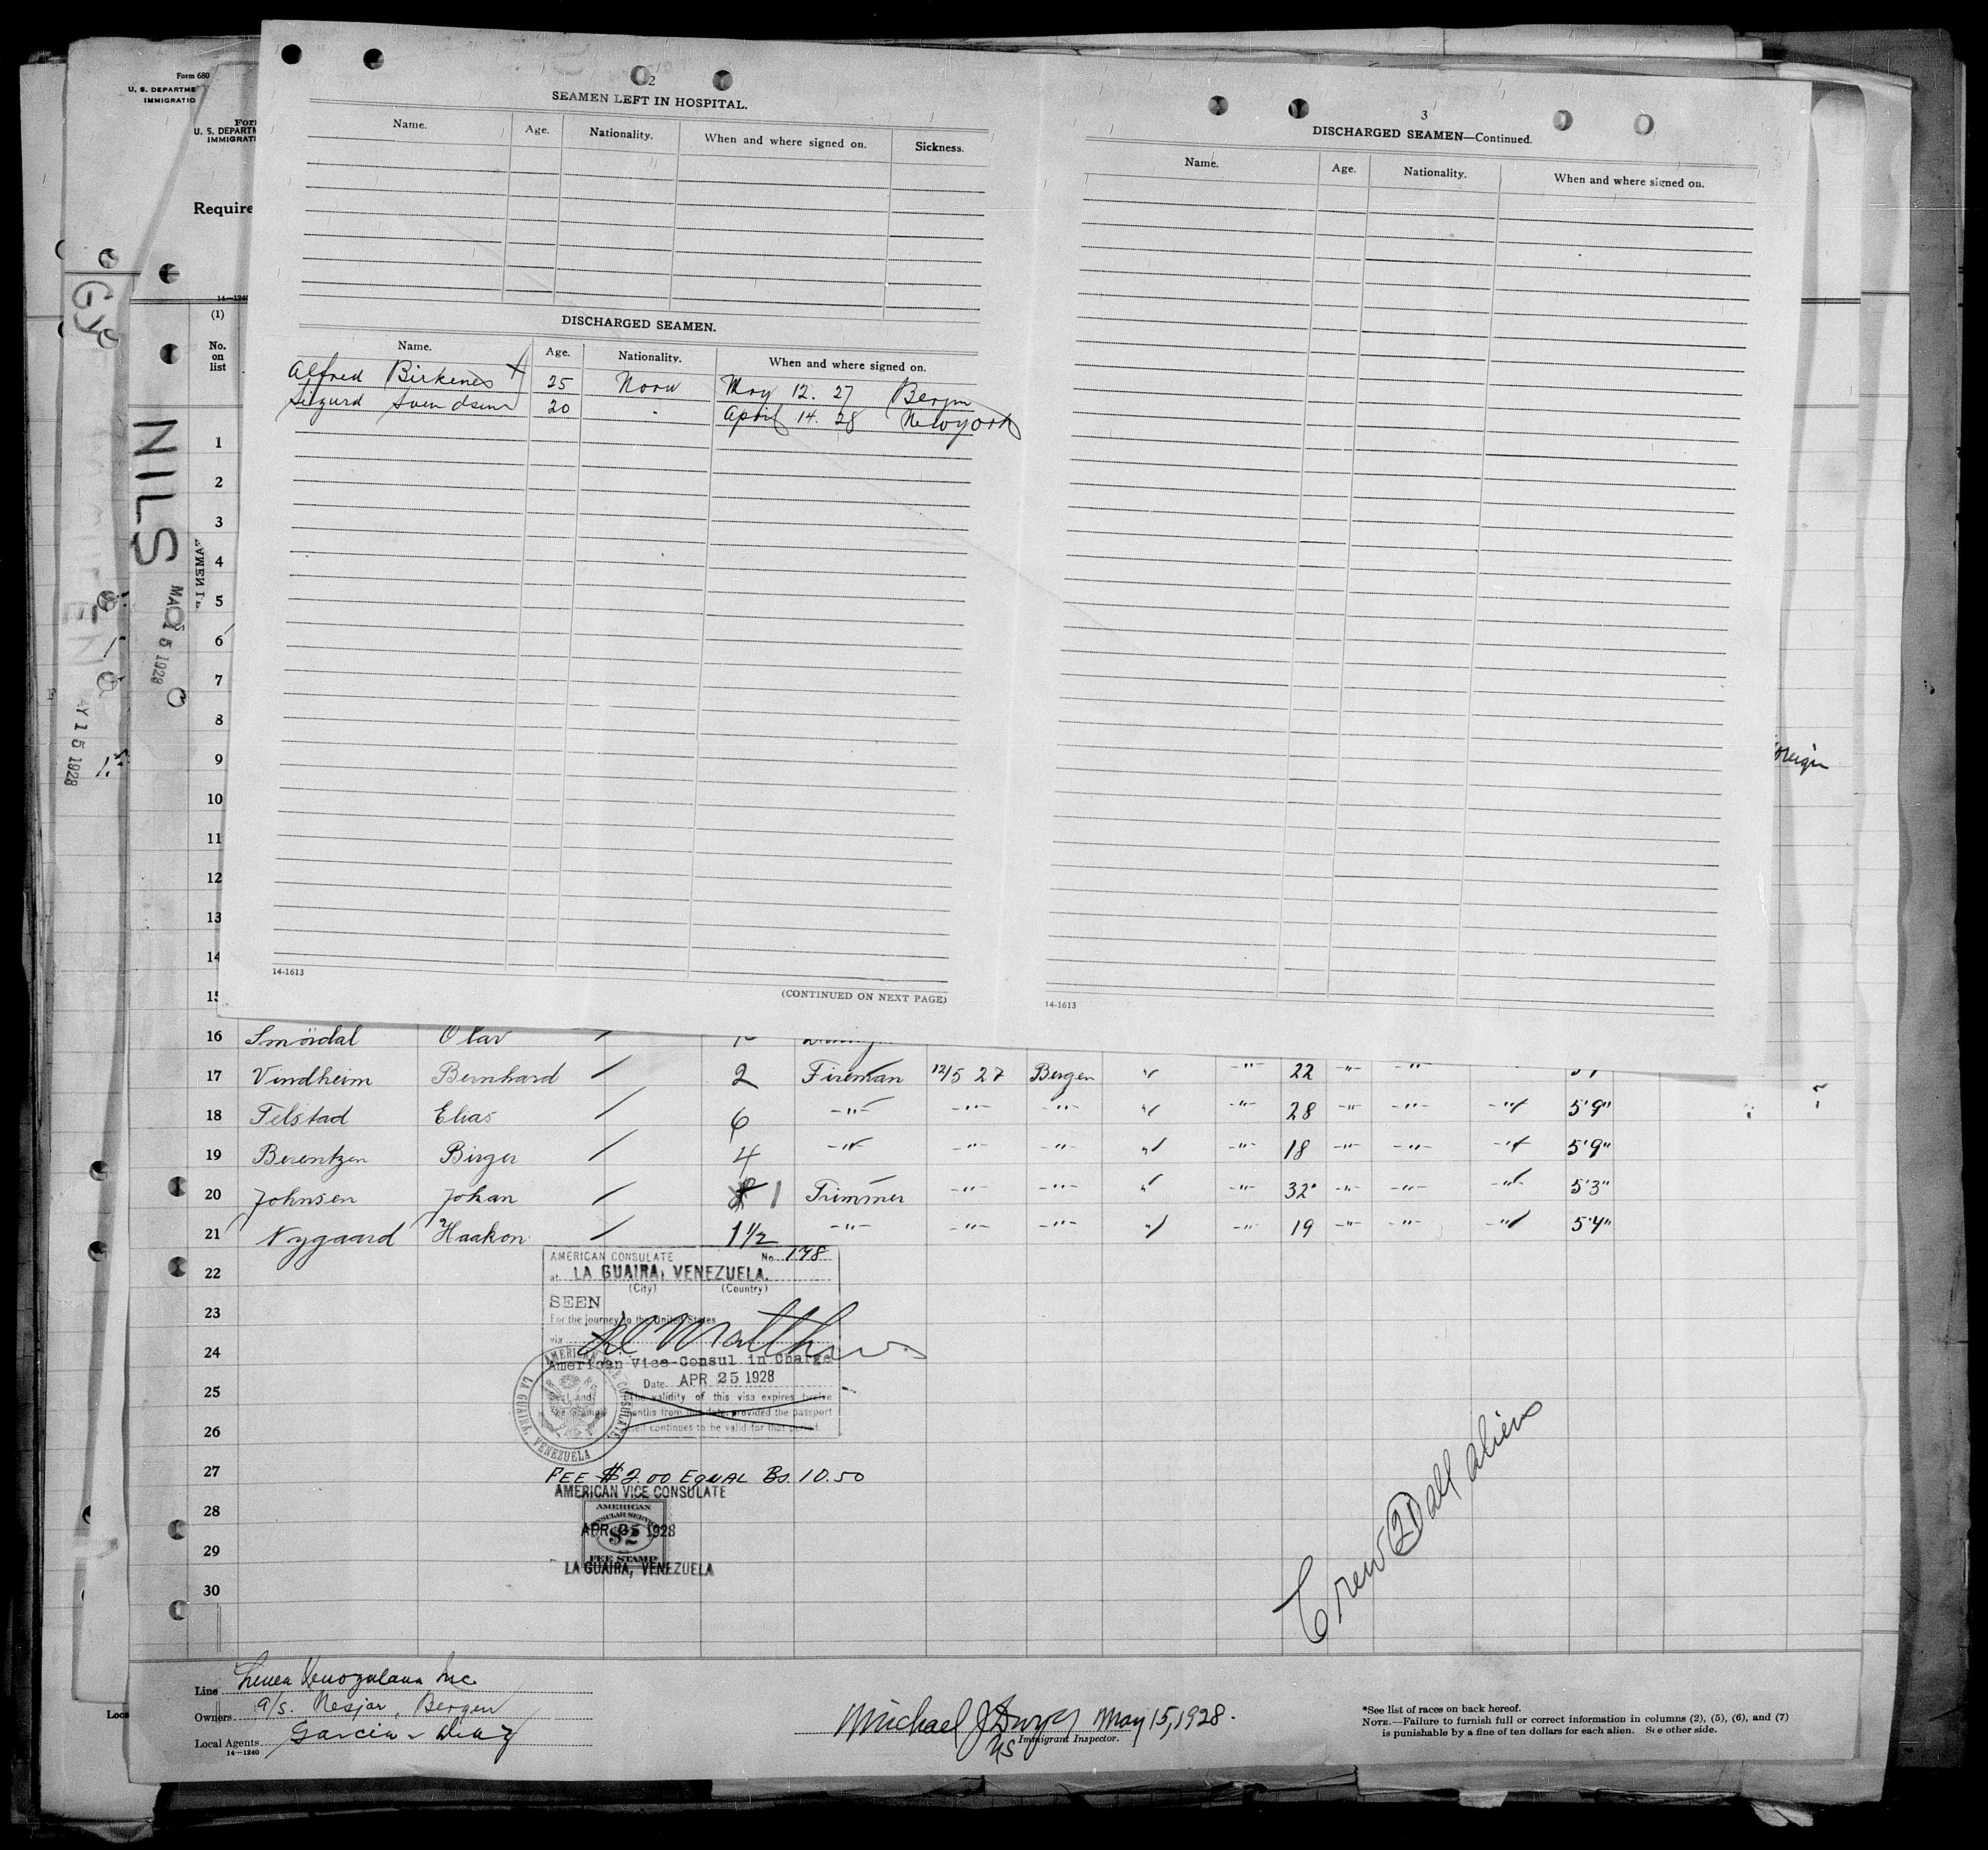 Form 680
U. S. DEPARTME
IMMIGRATIO
U. S. DEPARTM
IMMIGRATI
Require
14—1240
(1)
No.
on
list
NILS
MAY 15 1928
AY 15 1928
2
SEAMEN LEFT IN HOSPITAL.
Name. Age. Nationality. When and where signed on. Sickness.
DISCHARGED SEAMEN.
Name. Age. Nationality. When and where signed on.
Alfred Birkenes 25 Norw May 12. 27 Bergen
Sigurd Svendsen 20 " April 14. 28 Newyork
14-1613
(CONTINUED ON NEXT PAGE)
3
DISCHARGED SEAMEN—Continued.
Name. Age. Nationality. When and where signed on.
14-1613
oreign
1
2
3
4
5
6
7
8
9
10
11
12
13
14
15
16 Smördal Olav
17 Vindheim Bernhard / 2 Fireman 12/5 27 Bergen " -"- 22 -"- -"-
18 Telstad Elias / 6 -"- -"- -"- " -"- 28 -"- -"- -"- 5'9"
19 Berentzen Birger / 4 -"- -"- -"- " -"- 18 -"- -"- -"- 5'9"
20 Johnsen Johan / 1 Trimmer -"- -"- " -"- 32 -"- -"- -"- 5'3"
21 Nygaard Haakon / 1 1/2 -"- -"- -"- " -"- 19 -"- -"- -"- 5'4"
22
23
24
25
26
27
28
29
30
AMERICAN CONSULATE No. 178
at LA GUAIRA, VENEZUELA.
(City) (Country)
SEEN
For the journey to the United States
via
American Vice-Consul in Charge
Date APR 25 1928
The validity of this visa expires twelve
months from this date, provided the passport
itself continues to be valid for that period.
AMERICAN VICE CONSULATE
LA GUAIRA, VENEZUELA
FEE $2.00 EQUAL Bs. 10.50
AMERICAN VICE CONSULATE
AMERICAN
CONSULAR SERVICE
APR 25 1928
$2
FEE STAMP
LA GUAIRA, VENEZUELA
Crew 21 all aliens
Line Linea Venezolana Inc.
Owners a/s. Nesjar, Bergen
Local Agents Garcia & Diaz
14—1240
Michael J Dwyer May 15, 1928.
Immigrant Inspector.
*See list of races on back hereof.
NOTE.—Failure to furnish full or correct information in columns (2), (5), (6), and (7)
is punishable by a fine of ten dollars for each alien. See other side.